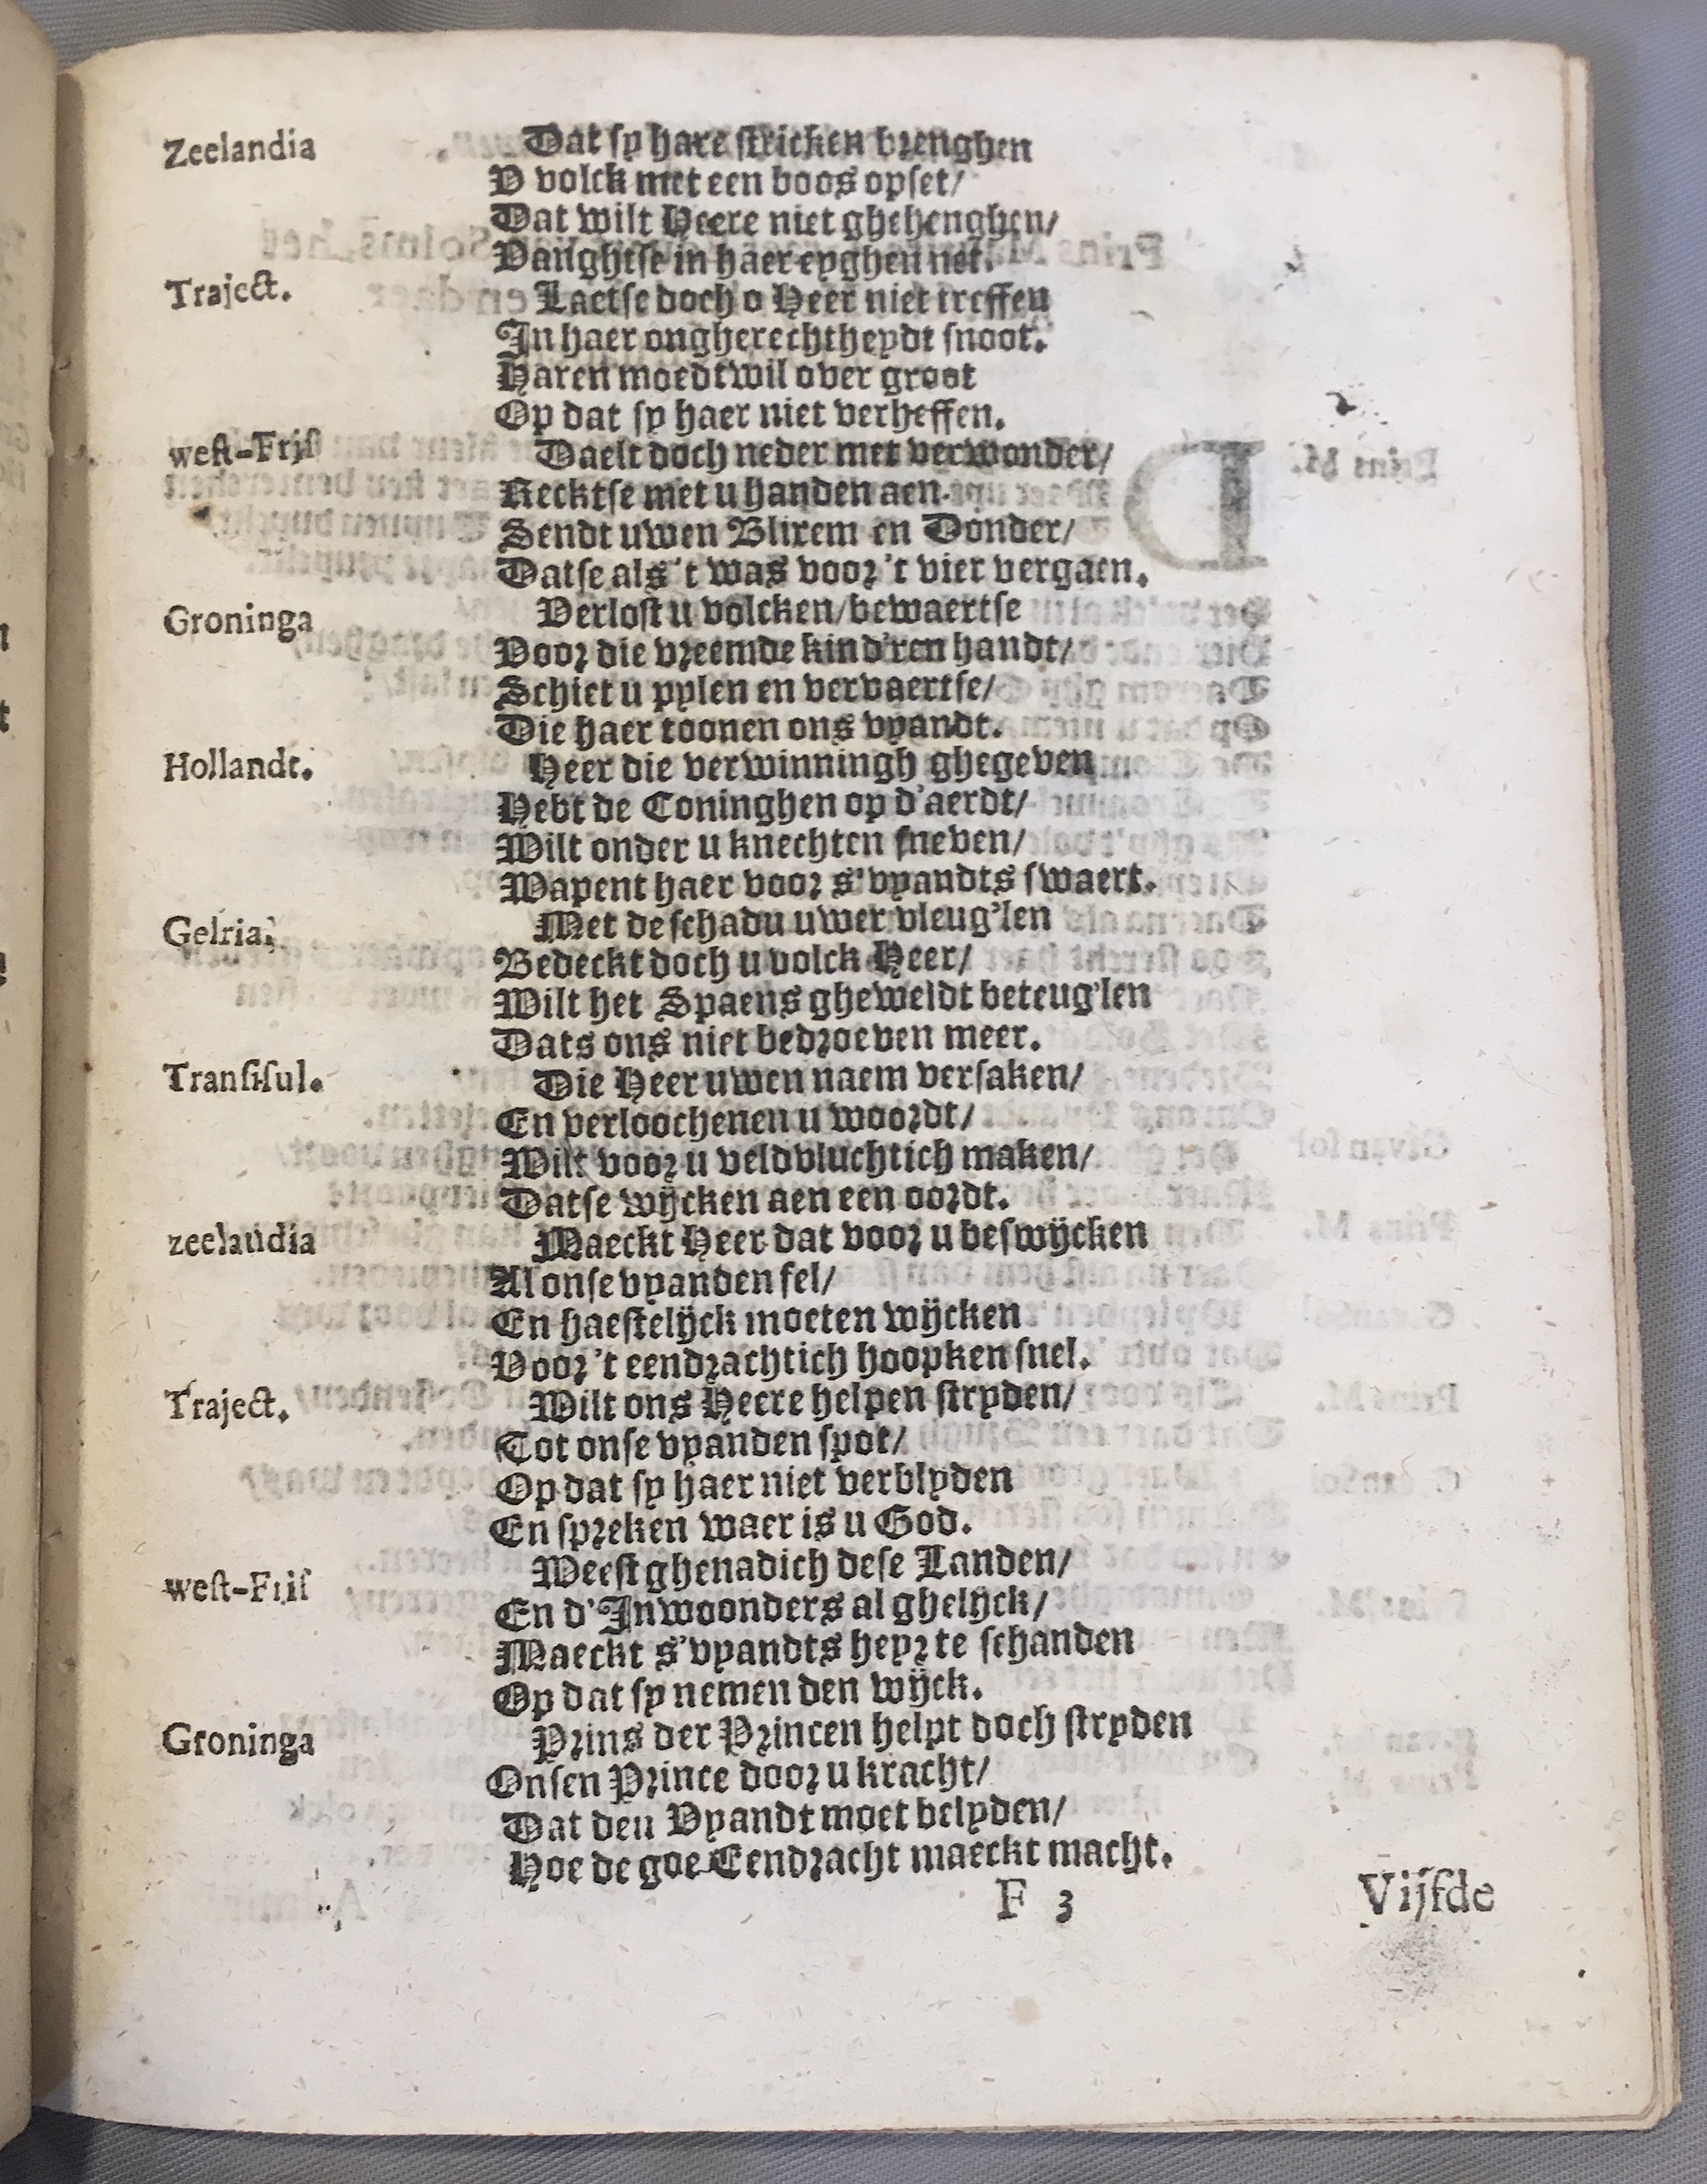 Zeelandia Dat sy hare stricken brenghen
V volck met een boos opset/
Dat wilt Heere niet ghehenghen/
Vanghtse in haer eyghen net.
Traject. Laetse doch o Heer niet treffen
In haer ongherechtheydt snoot.
Haren moedtwil over groot
Op dat sy haer niet verheffen.
west-Fris Daelt doch neder met verwonder/
Recktse met u handen aen.
Sendt uwen Blixem en Donder/
Datse als 't was voor 't vier vergaen.
Groninga Verlost u volcken/bewaertse
Voor die vreemde kind'ren handt/
Schiet u pylen en vervaertse/
Die haer toonen ons vyandt.
Hollandt. Heer die verwinningh ghegeven
Hebt de Coninghen op d'aerdt/
Wilt onder u knechten sneven/
Wapent haer voor s'vyandts swaert.
Gelria. Met de schadu uwer vleug'len
Bedeckt doch u volck Heer/
Wilt het Spaens gheweldt beteug'len
Dats ons niet bedroeven meer.
Transisul. Die Heer uwen naem versaken/
En verloochenen u woordt/
Wilt voor u veldvluchtich maken/
Datse wijcken aen een oordt.
zeelandia Maeckt Heer dat voor u beswijcken
Al onse vyanden fel/
En haestelijck moeten wijcken
Voor 't eendrachtich hoopken snel.
Traject. Wilt ons Heere helpen stryden/
Tot onse vyanden spot/
Op dat sy haer niet verblyden
En spreken waer is u God.
west-Fris Weest ghenadich dese Landen/
En d'Inwoonders al ghelijck/
Maeckt s'vyandts heyr te schanden
Op dat sy nemen den wijck.
Groninga Prins der Princen helpt doch stryden
Onsen Prince door u kracht/
Dat den Vyandt moet belyden/
Hoe de goe Eendracht maeckt macht.
F 3 Vijfde